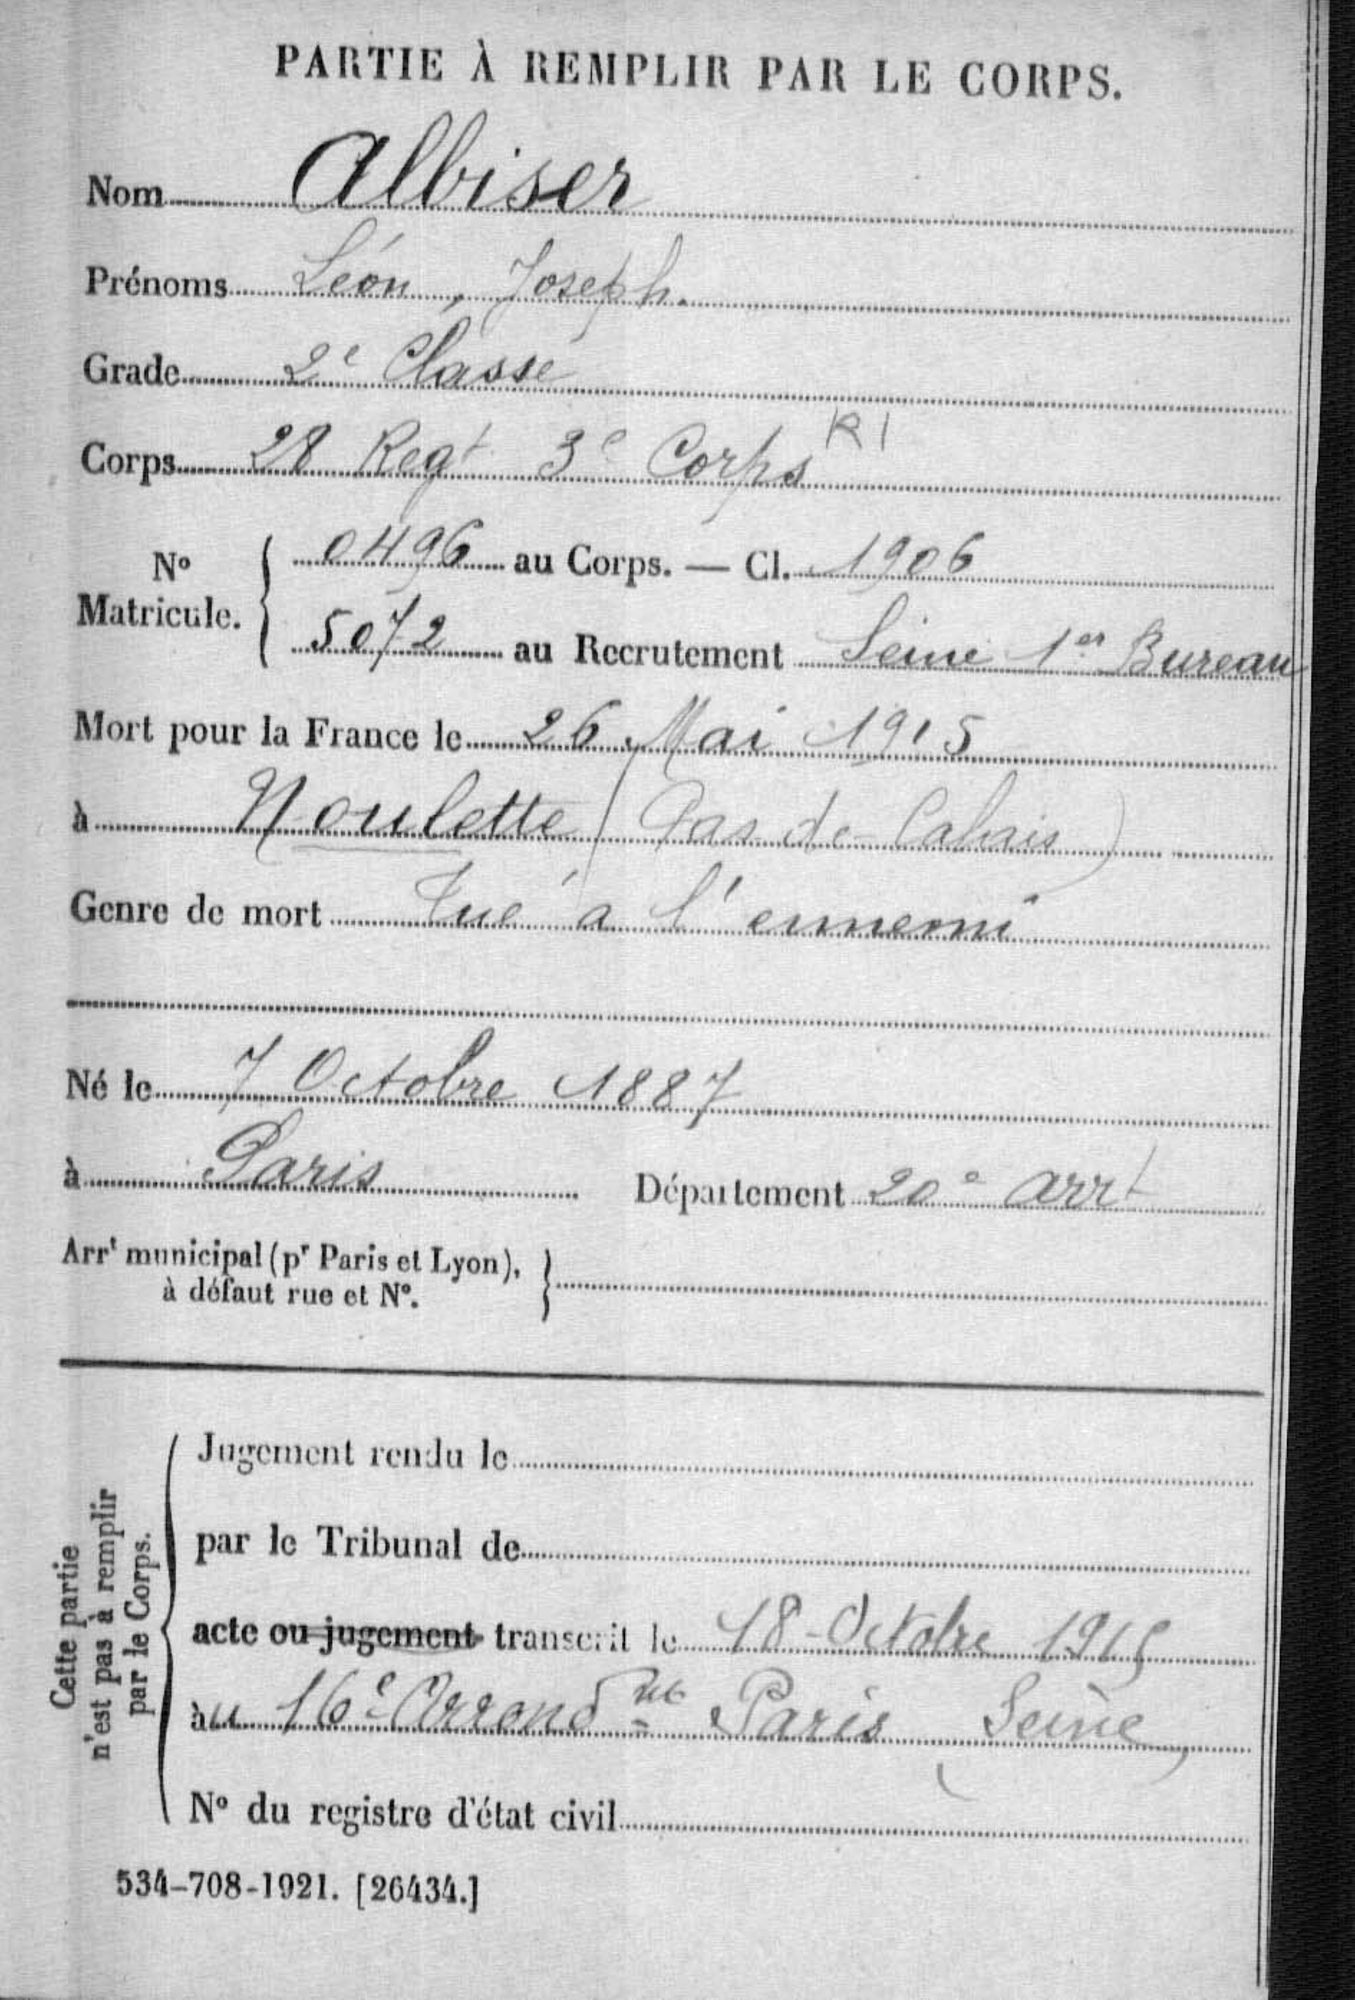 PARTIE À REMPLIR PAR LE CORPS.
Nom Albiser
Prénoms Léon, Joseph.
Grade 2e Classe
Corps 28 Regt 3e Corps RI
No Matricule. { 0496 au Corps. — Cl. 1906
5072 au Recrutement Seine 1er Bureau
Mort pour la France le 26 Mai 1915
à Noulette (Pas-de-Calais)
Genre de mort Tué à l'ennemi
Né le 7 Octobre 1887
à Paris Département 20e arrt
Arrt municipal (pr Paris et Lyon),
à défaut rue et No.
Cette partie
n'est pas à remplir
par le Corps.
Jugement rendu le
par le Tribunal de
acte ou jugement transcrit le 18 Octobre 1915
au 16e Arrondnt Paris (Seine)
No du registre d'état civil
534-708-1921. [26434.]